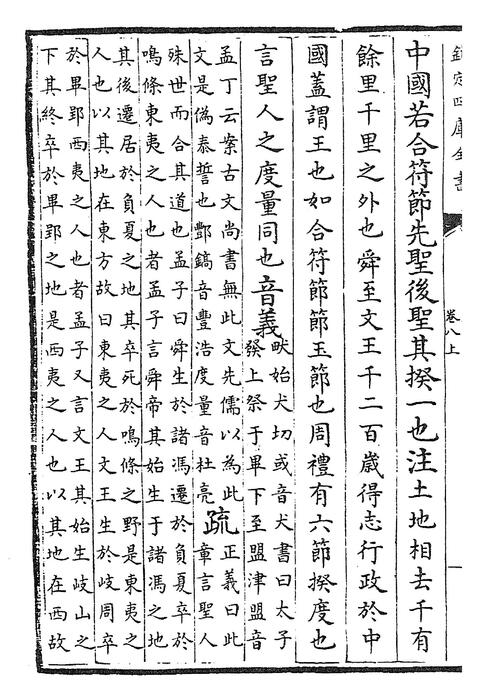 欽定四庫全書
卷八上
中國若合符節先聖後聖其揆一也注土地相去千有
餘里千里之外也舜至文王千二百歲得志行政於中
國蓋謂王也如合符節節玉節也周禮有六節揆度也
言聖人之度量同也音義畎始犬切或音犬書曰太子
發上祭于畢下至盟津盟音
孟丁云案古文尚書無此文先儒以為此
文是偽泰誓也酆鎬音豐浩度量音杜亮疏正義曰此
章言聖人
殊世而合其道也孟子曰舜生於諸馮遷於負夏卒於
鳴條東夷之人也者孟子言舜帝其始生于諸馮之地
其後遷居於負夏之地其卒死於鳴條之野是東夷之
人也以其地在東方故曰東夷之人文王生於岐周卒
於畢郢西夷之人也者孟子又言文王其始生岐山之
下其終卒於畢郢之地是西夷之人也以其地在西故